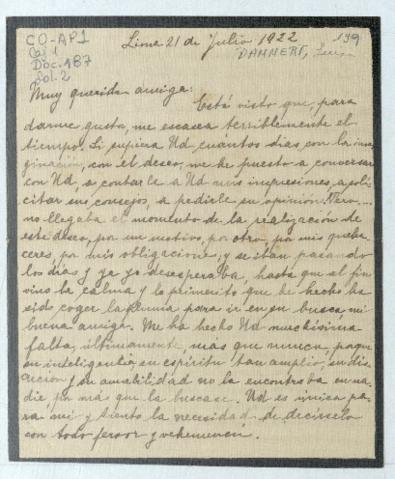 CO-AP1
Caj 1
Doc. 187
Fol. 2
139
DAMMERT,
Lima 21 de Julio 1922
Muy querida amiga:
Está visto que, para
darme gusto, me escasea terriblemente el
tiempo. Si supiera Ud cuántos dias con la ima
ginación, con el deseo, me he puesto a conversar
con Ud, a contarle a Ud mis impresiones, a soli
citar sus consejos, a pedirle su opinión. Pero...
no llegaba el momento de la realización de
este deseo, por un motivo, por otro, por mis queha
ceres, por mis obligaciones, y se iban pasando
los dias y ya yo desesperaba, hasta que al fin
vino la calma y lo primerito que he hecho ha
sido coger la pluma para ir en su busca, mi
buena amiga. Me ha hecho Ud muchísima
falta, últimamente más que nunca porque
su inteligencia, su espíritu tan amplio, su dis
creción y su amabilidad no la encontraba en na
die por más que la buscase. Ud es única pa
ra mí y siento la necesidad de decírselo
con todo fervor y vehemencia.